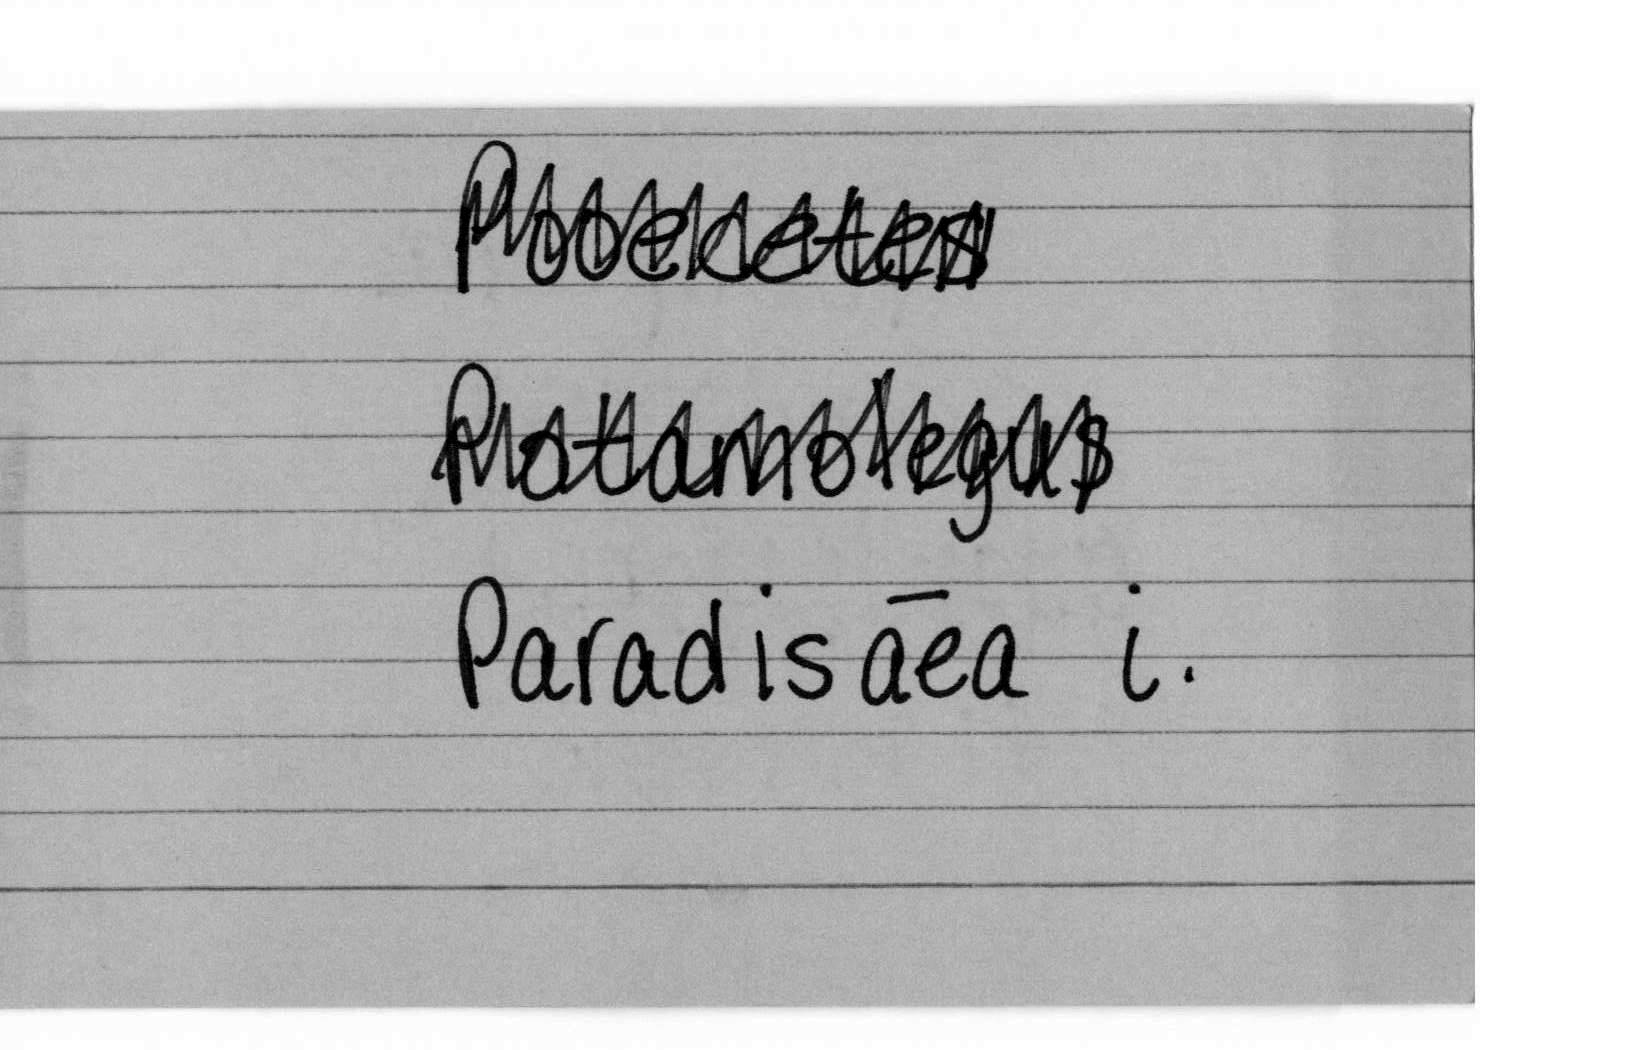 Pooecetes
Potamolegus
Paradisa͞ea i.